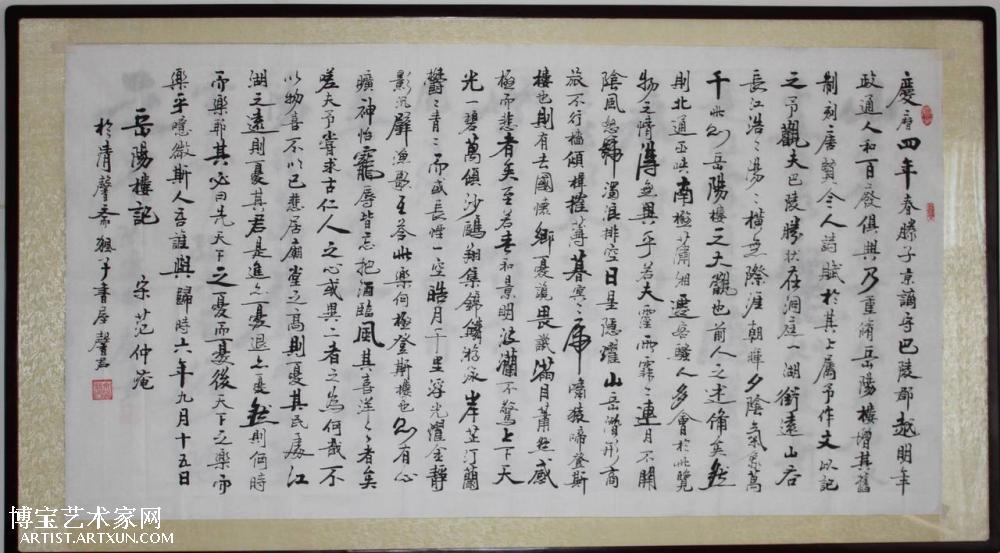 慶曆四年春滕子京謫守巴陵郡越明年
政通人和百廢俱興乃重修岳陽樓增其舊
制刻唐賢今人詩賦於其上屬予作文以記
之予觀夫巴陵勝狀在洞庭一湖銜遠山吞
長江浩〻湯〻橫無際涯朝暉夕陰氣象萬
千此則岳陽樓之大觀也前人之述備矣然
則北通巫峽南極瀟湘遷客騷人多會於此覽
物之情得無異乎若夫霪雨霏〻連月不開
陰風怒號濁浪排空日星隱耀山岳潛形商
旅不行檣傾楫摧薄暮冥〻虎嘯猿啼登斯
樓也則有去國懷鄉憂讒畏譏滿目蕭然感
極而悲者矣至若春和景明波瀾不驚上下天
光一碧萬傾沙鷗翔集錦鱗游泳岸芷汀蘭
鬱〻青〻而或長煙一空皓月千里浮光耀金靜
影沉璧漁歌互答此樂何極登斯樓也則有心
曠神怡寵辱皆忘把酒臨風其喜洋〻者矣
嗟夫予嘗求古仁人之心或異二者之為何哉不
以物喜不以己悲居廟堂之高則憂其民處江
湖之遠則憂其君是進亦憂退亦憂然則何時
而樂耶其必曰先天下之憂而憂後天下之樂而
樂乎噫微斯人吾誰與歸時六年九月十五日
岳陽樓記 宋范仲淹
於清馨斋書房馨
博宝艺术家网
ARTIST.ARTXUN.COM